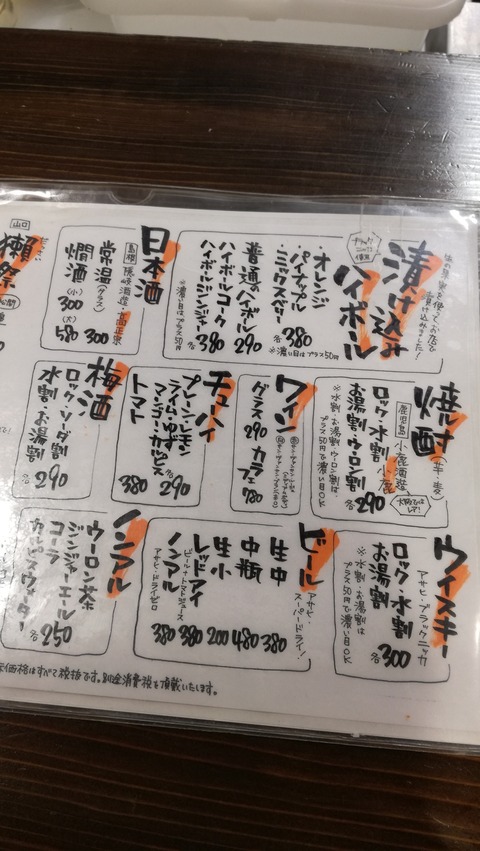 漬け込み
ハイボール
・オレンジ
・パイナップル
・ミックスベリー
各380
※濃い目はプラス50円
普通のハイボール 290
ハイボールコーク
ハイボールジンジャー
各380
※濃い目はプラス50円
日本酒
島根
隠岐酒造・高正宗
常温(グラス) 300
燗酒(小) 300
(大) 580
山口
獺祭
焼酎
芋・麦
鹿児島
小鹿酒造
小鹿
ロック・水割
お湯割・ウーロン割
各290
※水割・お湯割・ウーロン割は
プラス50円で濃い目OK
ワイン
グラス 290
カラフェ 780
チューハイ
プレーン・レモン
ライム・ゆず
マンゴー・カルピス
各290
トマト 380
梅酒
ロック・ソーダ割
水割・お湯割
各290
ウィスキー
アサヒ・ブラックニッカ
ロック・水割
お湯割
各300
※水割・お湯割は
プラス50円で濃い目OK
ビール
アサヒ・
スーパードライ!
生中 380
中瓶 480
生小 200
レッドアイ 380
ビール・トマトジュース
ノンアル 380
アサヒ・ドライゼロ
ノンアル
ウーロン茶
ジンジャーエール
コーラ
カルピスウォーター
各250
価格はすべて税抜です。別途消費税を頂戴いたします。